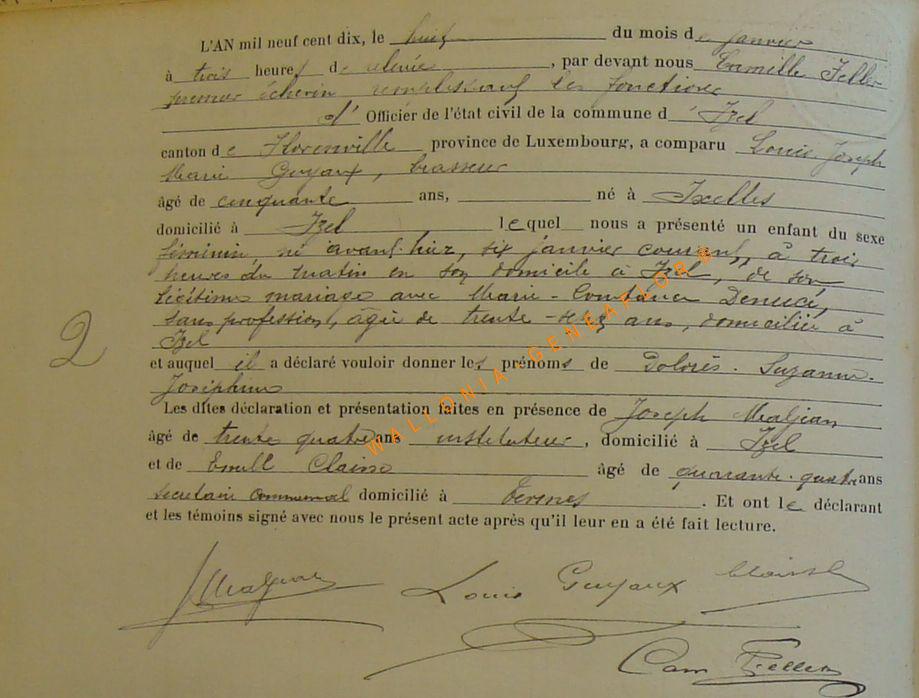 L'AN mil neuf cent dix, le huit du mois de janvier
à trois heures de relevée, par devant nous Camille Feller
premier échevin remplissant les fonctions
d' Officier de l'état civil de la commune d' Izel
canton de Florenville province de Luxembourg, a comparu Louis Joseph
Marie Guyaux, brasseur
âgé de cinquante ans, né à Ixelles
domicilié à Izel lequel nous a présenté un enfant du sexe
féminin, né avant-hier, six janvier courant, à trois
heures du matin en son domicile à Izel, de son
légitime mariage avec Marie-Constance
sans profession, âgée de trente-seize ans, domiciliée à
Izel
et auquel il a déclaré vouloir donner les prénoms de Dolorès-Suzanne-
Joséphine
Les dites déclaration et présentation faites en présence de Joseph Maljean
âgé de trente quatre ans instituteur, domicilié à Izel
et de Emile Claisse âgé de quarante-quatre ans
secrétaire communal domicilié à . Et ont le déclarant
et les témoins signé avec nous le présent acte après qu'il leur en a été fait lecture.
2
WALLONIA-GENEAFLORE
J Maljean Louis Guyaux Claisse
Cam Feller